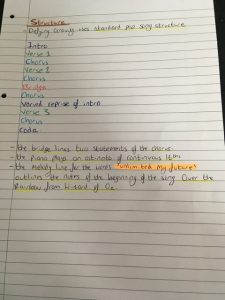 Structure
- Defying Gravity uses standard pop song structure
Intro
Verse 1
Chorus
Verse 2
Chorus
Bridge
Chorus
Varied reprise of intro
Verse 3
Chorus
Coda
- the bridge links two statements of the chorus.
- the piano plays an ostinato of continuous
- the melody line for the words "unlimited my future"
outlines the notes of the beginning of the song Over the
Rainbow from Wizard of Oz.